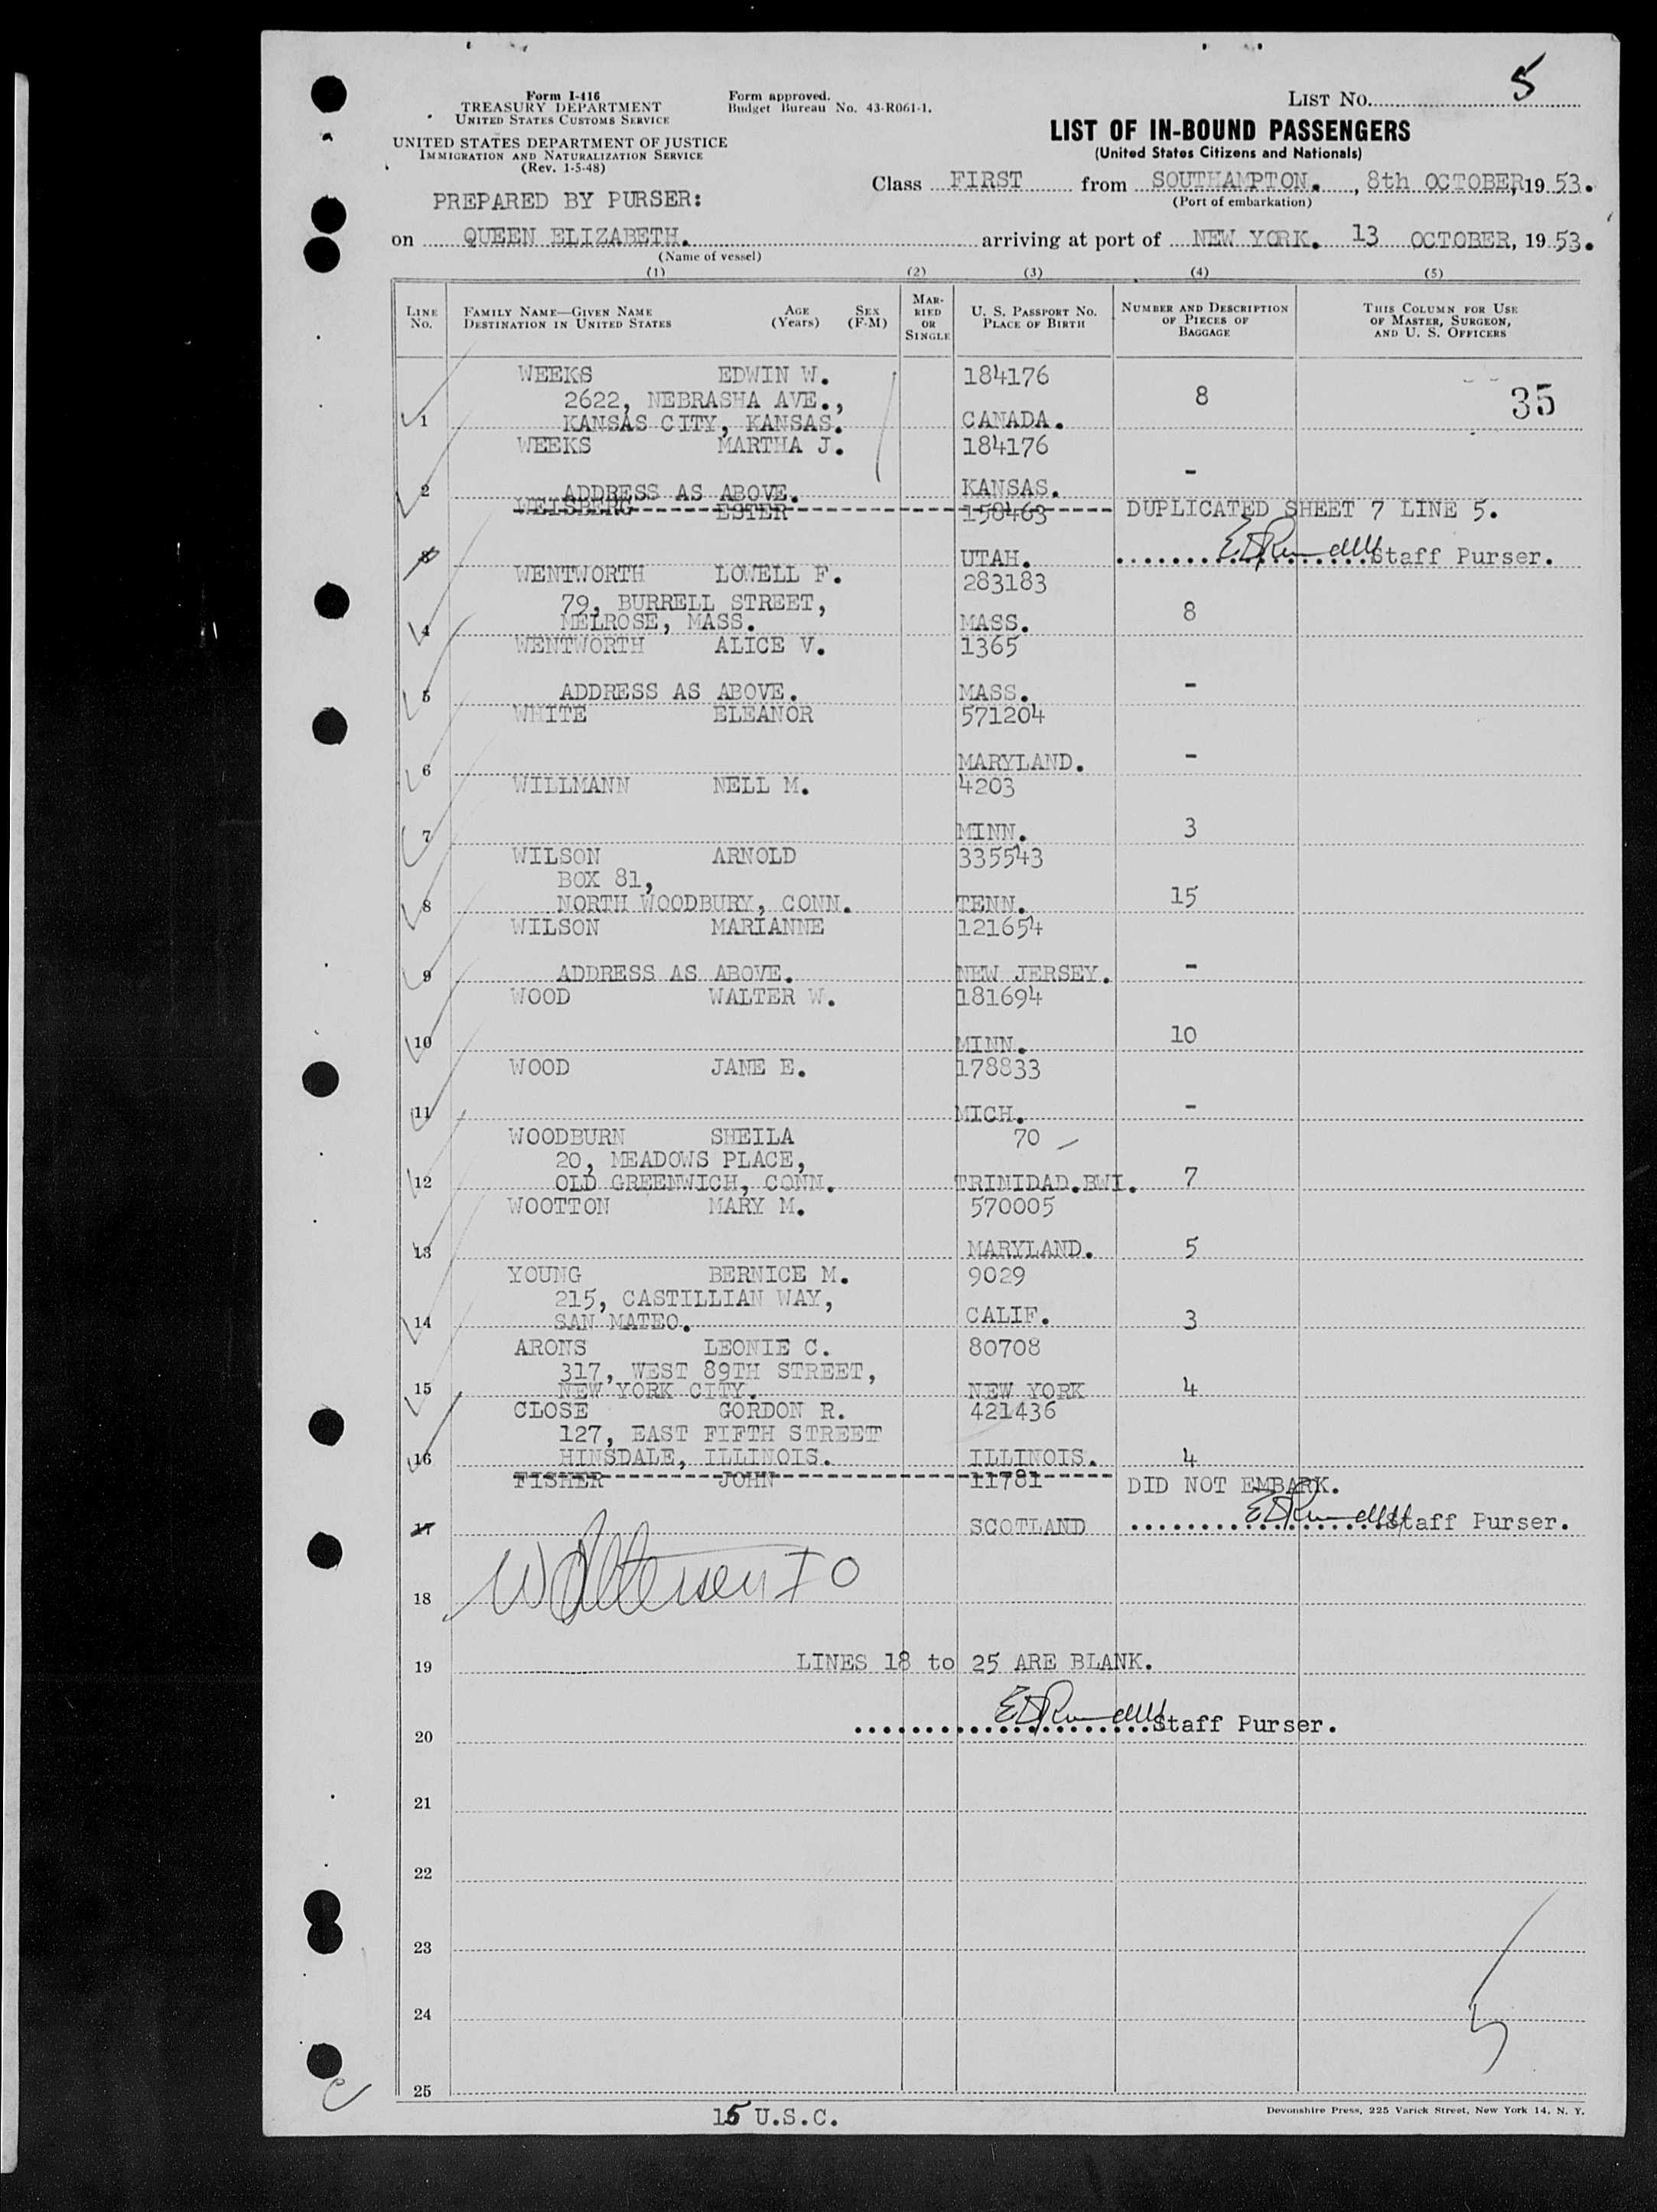 Form I-416
TREASURY DEPARTMENT
UNITED STATES CUSTOMS SERVICE
UNITED STATES DEPARTMENT OF JUSTICE
IMMIGRATION AND NATURALIZATION SERVICE
(Rev. 1-5-48)
Form approved.
Budget Bureau No. 43-R061-1.
LIST NO. 5
LIST OF IN-BOUND PASSENGERS
(United States Citizens and Nationals)
Class FIRST from SOUTHAMPTON. , 8th OCTOBER, 19 53.
(Port of embarkation)
PREPARED BY PURSER:
on QUEEN ELIZABETH. arriving at port of NEW YORK. 13 OCTOBER, 19 53.
(Name of vessel)
(1) (2) (3) (4) (5)
LINE No. FAMILY NAME—GIVEN NAME DESTINATION IN UNITED STATES AGE (Years) SEX (F-M) MARRIED OR SINGLE U. S. PASSPORT NO. PLACE OF BIRTH NUMBER AND DESCRIPTION OF PIECES OF BAGGAGE THIS COLUMN FOR USE OF MASTER, SURGEON, AND U. S. OFFICERS
WEEKS EDWIN W. 184176
2622, NEBRASHA AVE., 8 35
1 KANSAS CITY, KANSAS. CANADA.
WEEKS MARTHA J. 184176
-
2 ADDRESS AS ABOVE. KANSAS.
WEISBERG ESTER 158463 DUPLICATED SHEET 7 LINE 5.
3 UTAH. Staff Purser.
WENTWORTH LOWELL F. 283183
79, BURRELL STREET, 8
4 MELROSE, MASS. MASS.
WENTWORTH ALICE V. 1365
5 ADDRESS AS ABOVE. MASS. -
WHITE ELEANOR 571204
6 MARYLAND. -
WILLMANN NELL M. 4203
7 MINN. 3
WILSON ARNOLD 335543
BOX 81,
8 NORTH WOODBURY, CONN. TENN. 15
WILSON MARIANNE 121654
9 ADDRESS AS ABOVE. NEW JERSEY. -
WOOD WALTER W. 181694
10 MINN. 10
WOOD JANE E. 178833
11 MICH. -
WOODBURN SHEILA 70
20, MEADOWS PLACE,
12 OLD GREENWICH, CONN. TRINIDAD.BWI. 7
WOOTTON MARY M. 570005
13 MARYLAND. 5
YOUNG BERNICE M. 9029
215, CASTILLIAN WAY,
14 SAN MATEO. CALIF. 3
ARONS LEONIE C. 80708
317, WEST 89TH STREET,
15 NEW YORK CITY. NEW YORK 4
CLOSE GORDON R. 421436
127, EAST FIFTH STREET
16 HINSDALE, ILLINOIS. ILLINOIS. 4
FISHER JOHN 11781 DID NOT EMBARK.
17 SCOTLAND Staff Purser.
18
19 LINES 18 to 25 ARE BLANK.
Staff Purser.
20
21
22
23
24
25
15 U.S.C.
Devonshire Press, 225 Varick Street, New York 14, N. Y.